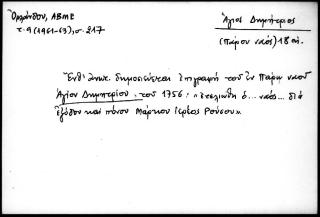 Ὀρλάνδου, ΑΒΜΕ
τ. 9 (1961-63), σ. 217
Ἅγιος Δημήτριος
(Πάρου ναός) 18 αἰ.
Ἔνθ' ἀνωτ. δημοσιεύεται ἐπιγραφὴ τοῦ ἐν Πάρῳ ναοῦ
Ἁγίου Δημητρίου τοῦ 1756: «ἐτελιώθη ὁ... ναὸς... διὰ
ἐξόδου καὶ πόνου Μάρκου ἱερέος Ρούσου».